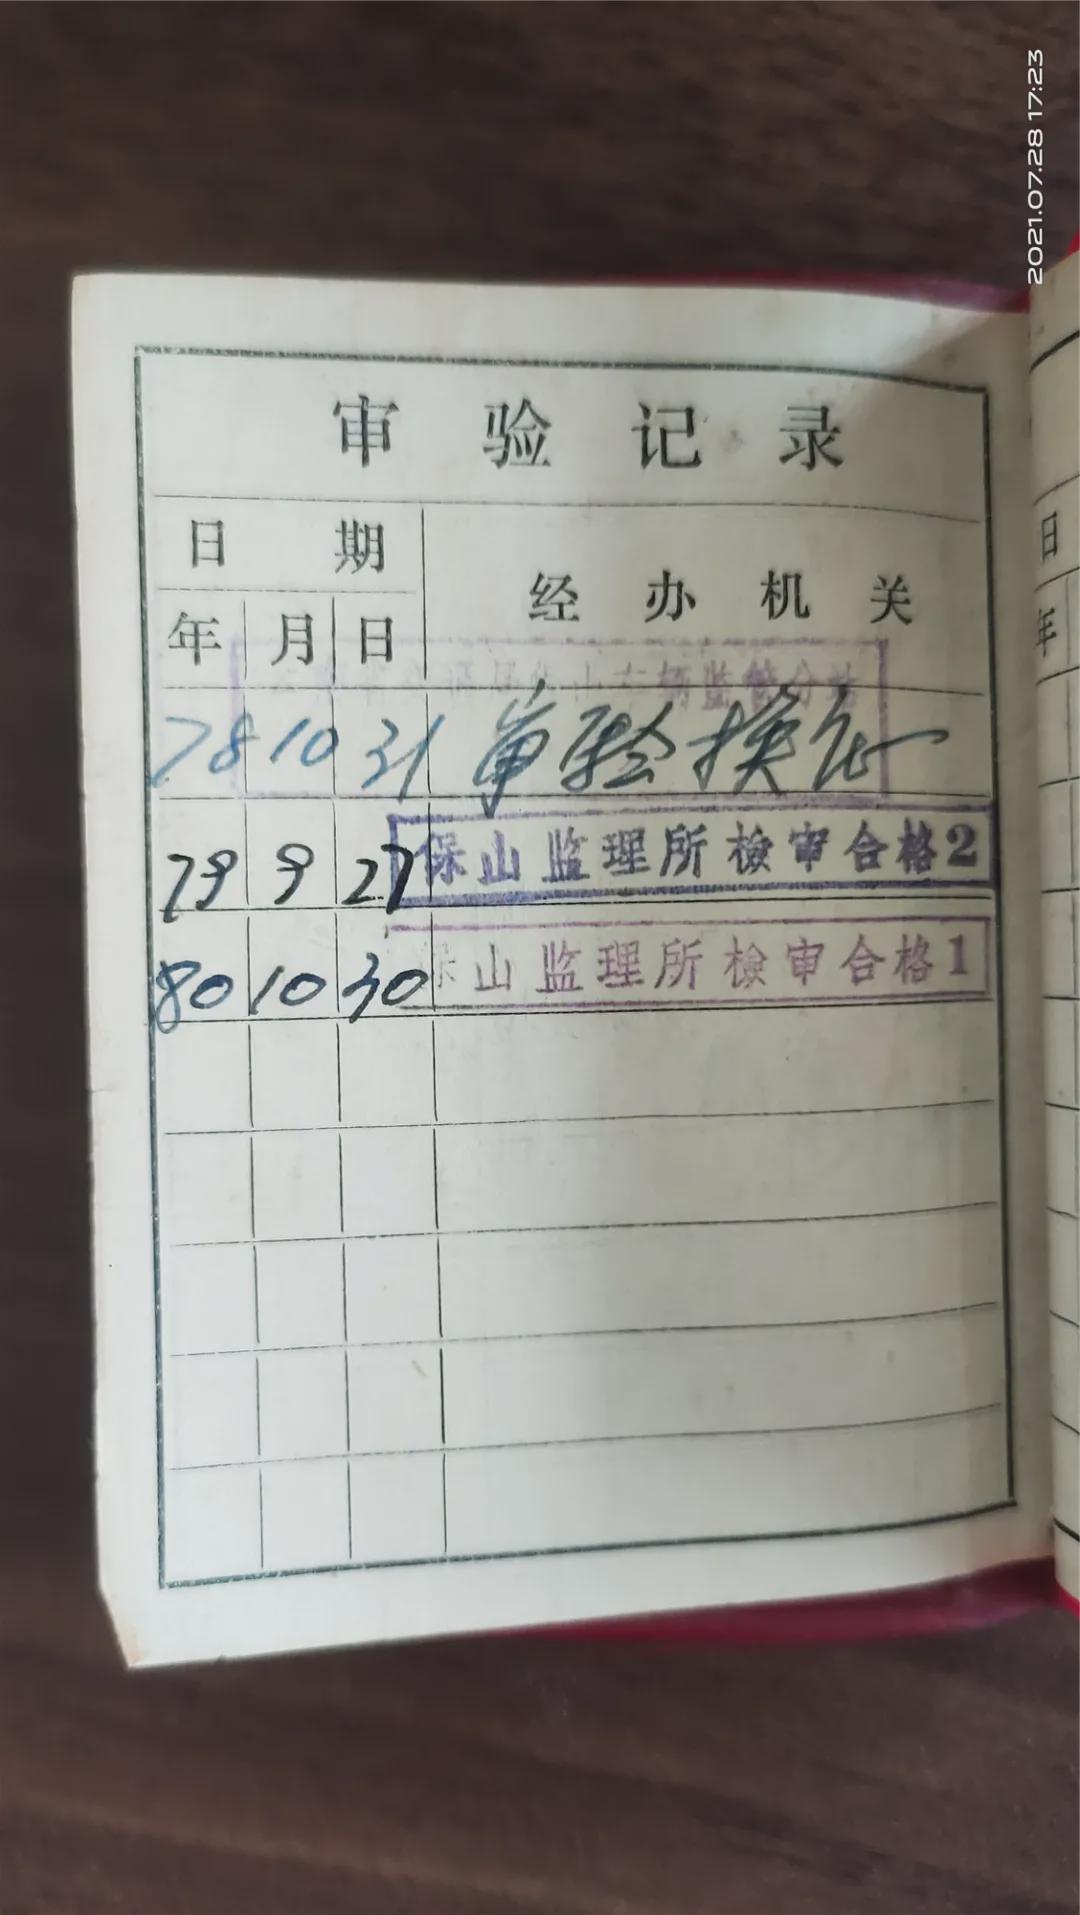 2021.07.28 17:23
审验记录
日期
经办机关
年 月 日
车辆监管分站
78 10 31 审验换证
79 9 27 保山监理所檢审合格2
80 10 30 保山监理所檢审合格1
日
年